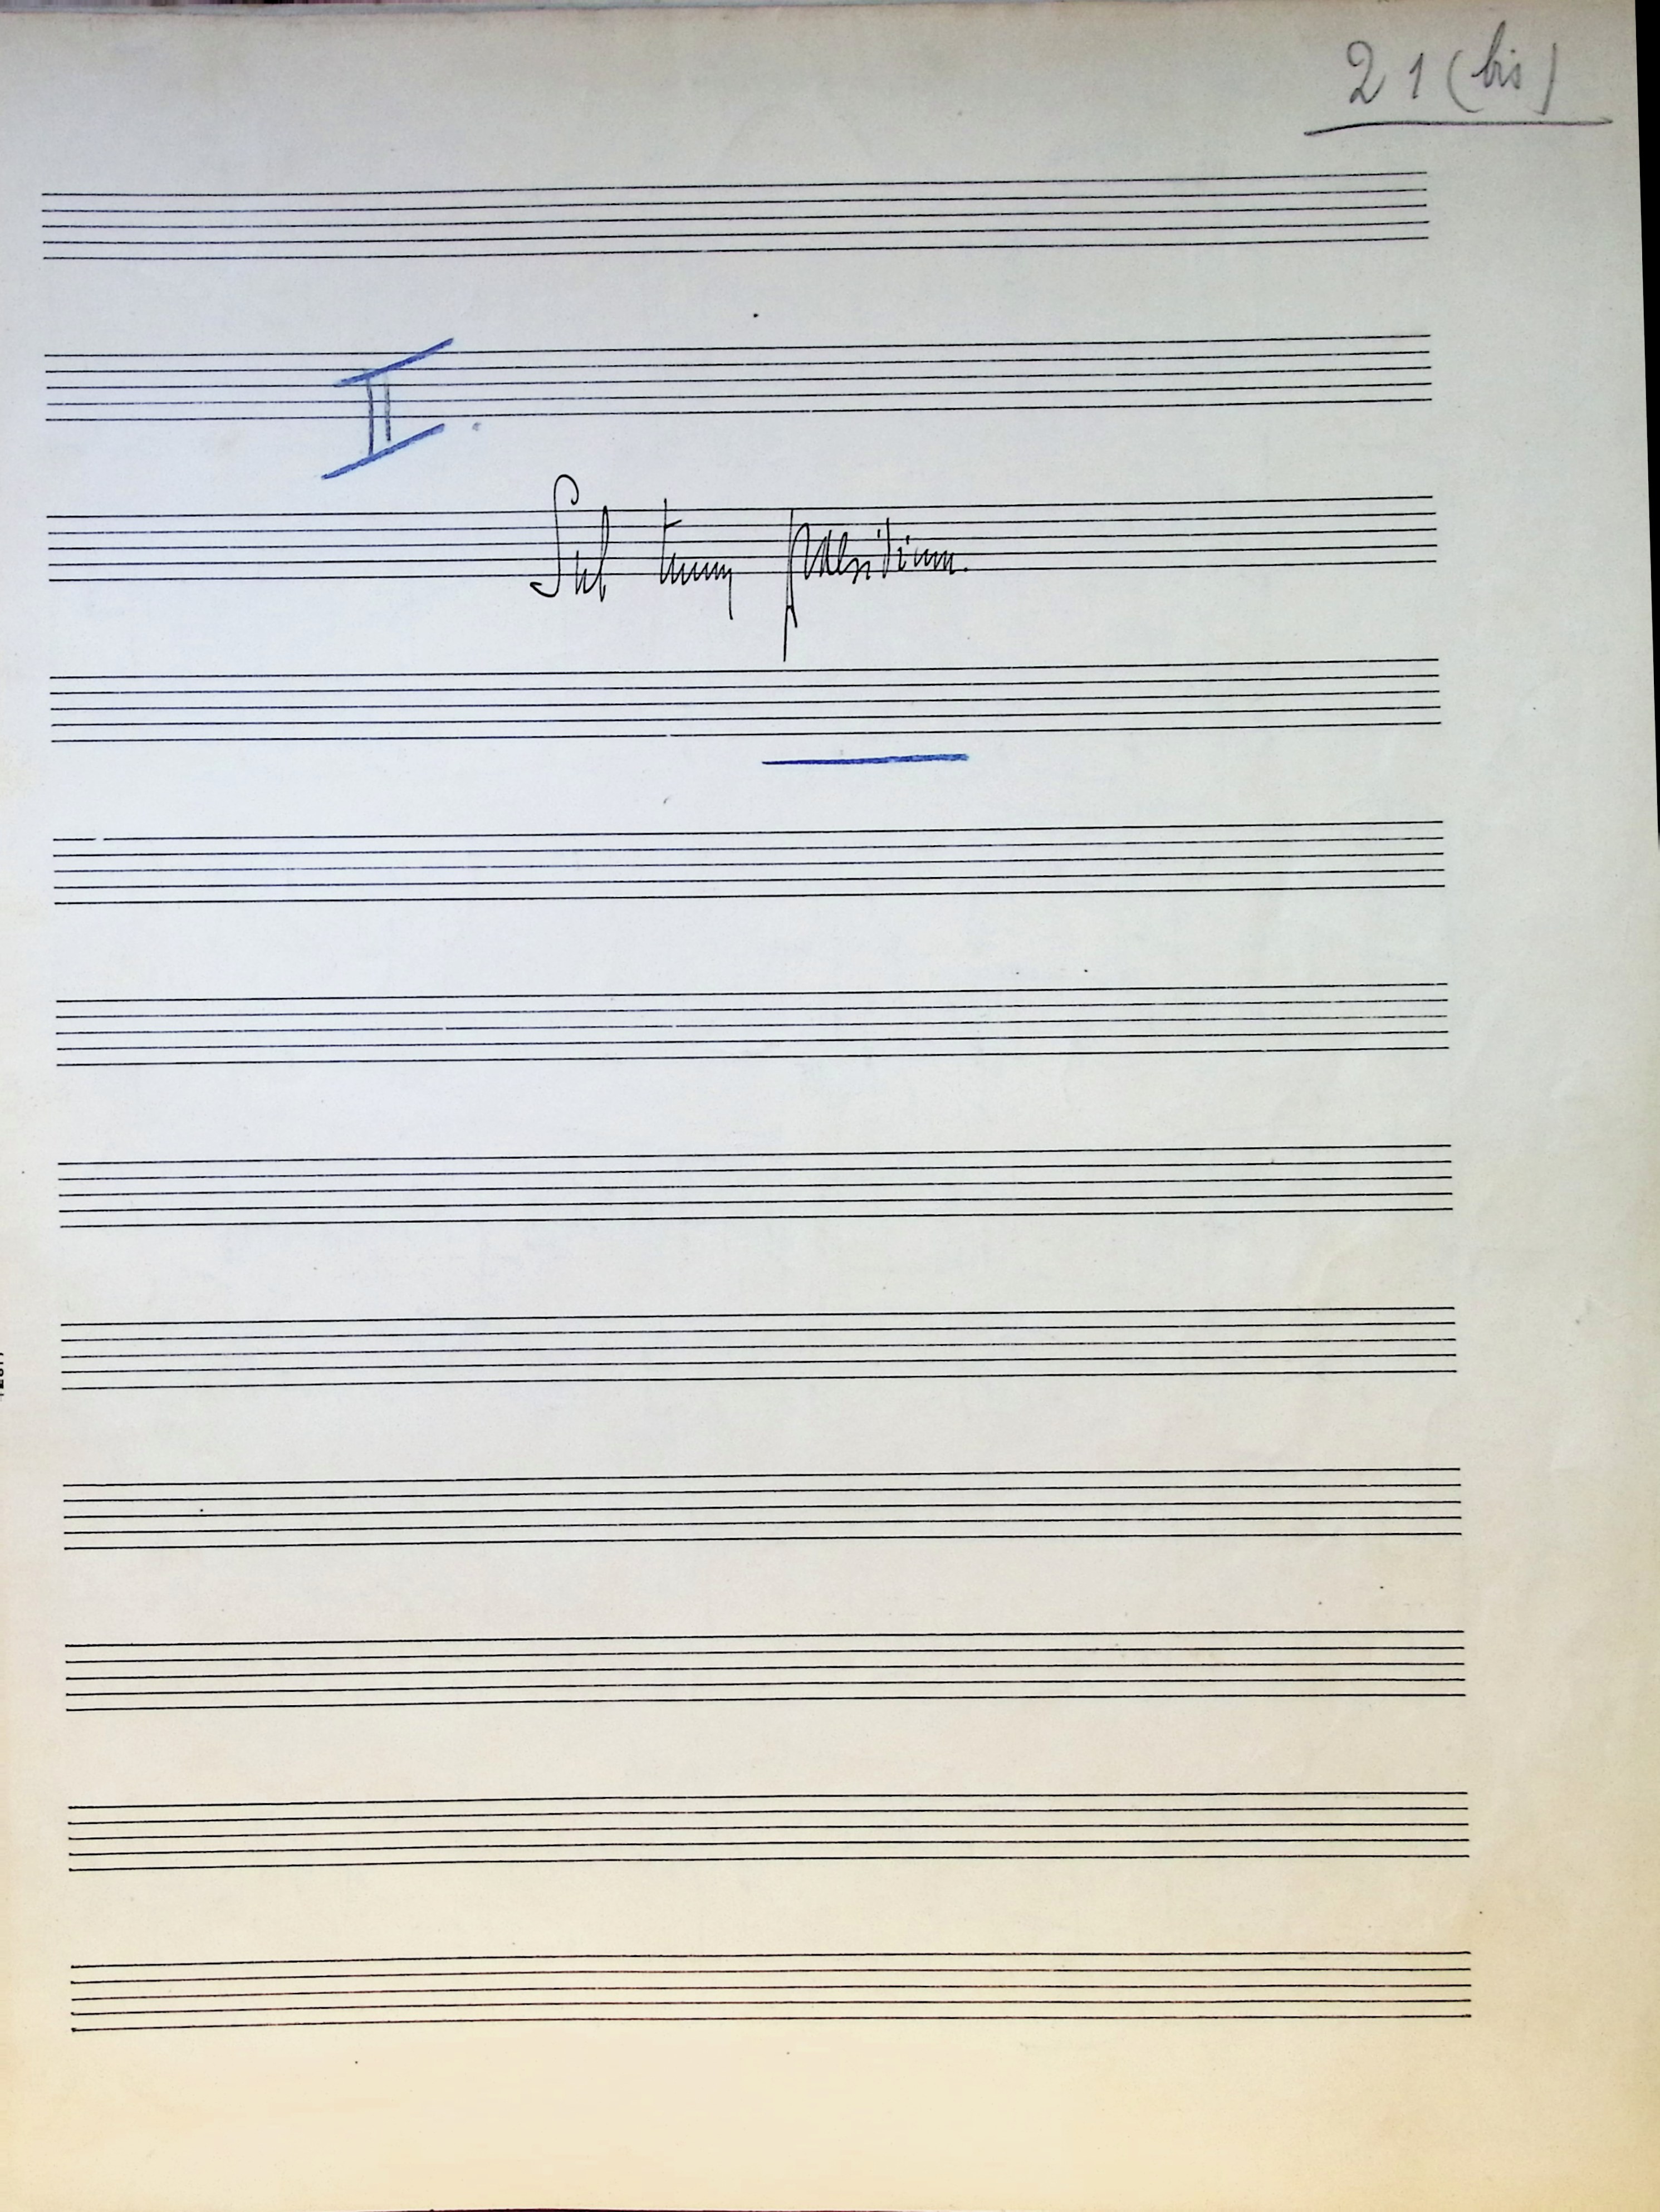 21 (bis)
II.
Sub tuum praesidium.